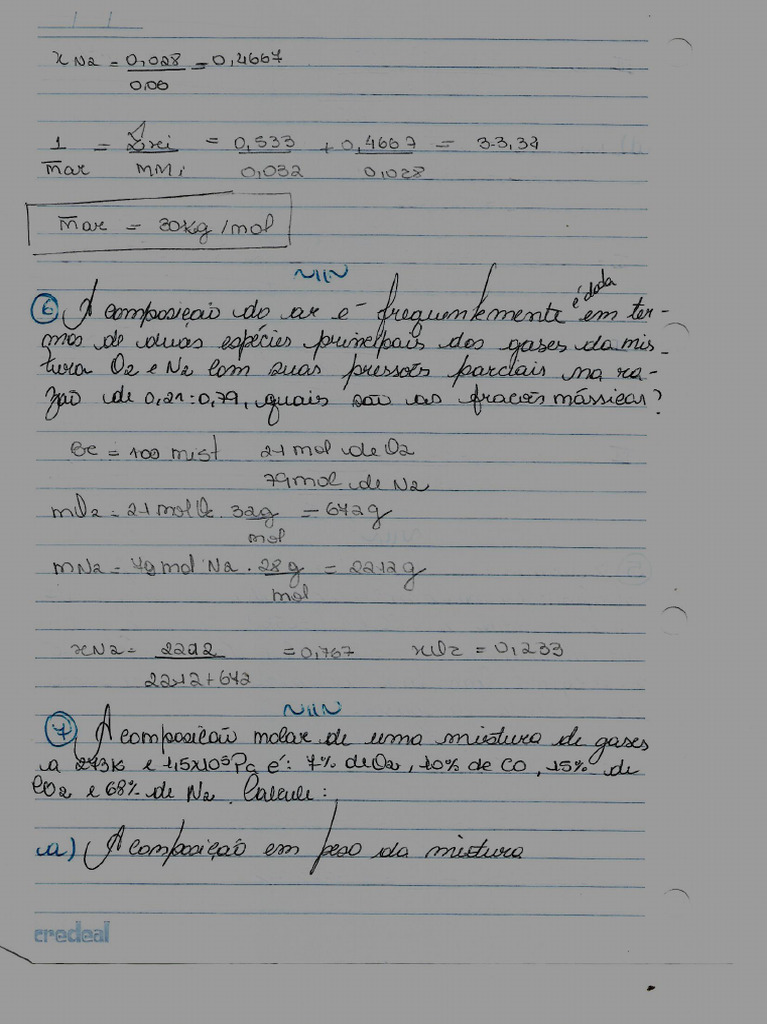 x N2 = 0,028 / 0,06 = 0,4667
1 / m̅ar = Σxi / MMi = 0,533 / 0,032 + 0,4667 / 0,028 = 33,34
m̅ar = 30kg/mol
~11~
6 A composição do ar é frequentemente é dada em ter-
mos de duas espécies principais dos gases da mis-
tura O2 e N2 com suas pressões parciais na ra-
zão de 0,21:0,79, quais são as frações mássicas?
Bc = 100 mist 21 mol de O2
79 mol de N2
mO2 = 21 molO2 . 32g / mol = 672g
mN2 = 79 mol N2 . 28g / mol = 2212g
xN2 = 2212 / 2212+672 = 0,767 xO2 = 0,233
~11~
7 A composição molar de uma mistura de gases
a 273K e 1,5x10⁵Pa é: 7% de O2, 10% de CO, 15% de
CO2 e 68% de N2. Calcule:
a) A composição em peso da mistura
credeal